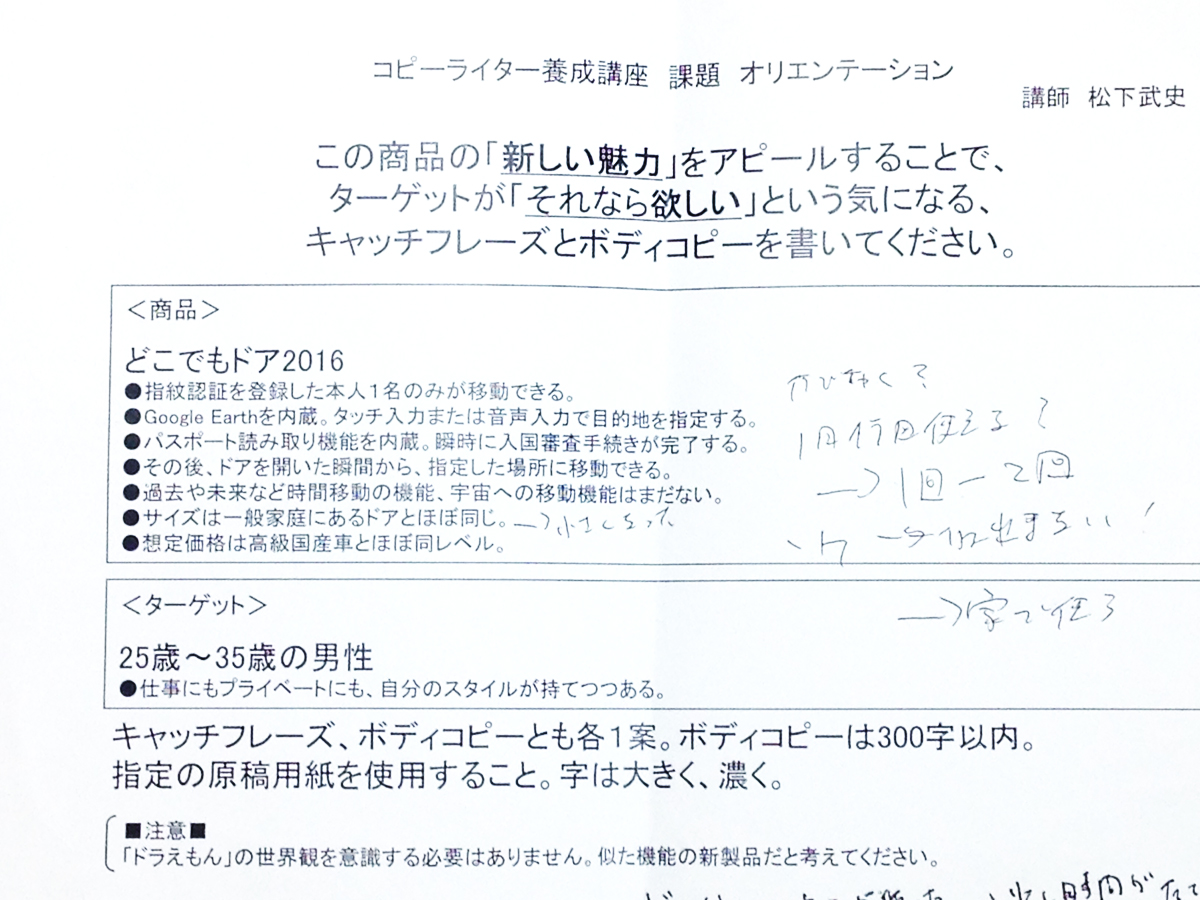 コピーライター養成講座 課題 オリエンテーション
講師 松下武史
この商品の「新しい魅力」をアピールすることで、
ターゲットが「それなら欲しい」という気になる、
キャッチフレーズとボディコピーを書いてください。
＜商品＞
どこでもドア2016
●指紋認証を登録した本人1名のみが移動できる。
●Google Earthを内蔵。タッチ入力または音声入力で目的地を指定する。
●パスポート読み取り機能を内蔵。瞬時に入国審査手続きが完了する。
●その後、ドアを開いた瞬間から、指定した場所に移動できる。
●過去や未来など時間移動の機能、宇宙への移動機能はまだない。
●サイズは一般家庭にあるドアとほぼ同じ。→小さくなった
●想定価格は高級国産車とほぼ同レベル。
1日何回使える?
→1回〜2回
→家で使う
＜ターゲット＞
25歳～35歳の男性
●仕事にもプライベートにも、自分のスタイルが持てつつある。
キャッチフレーズ、ボディコピーとも各1案。ボディコピーは300字以内。
指定の原稿用紙を使用すること。字は大きく、濃く。
■注意■
「ドラえもん」の世界観を意識する必要はありません。似た機能の新製品だと考えてください。